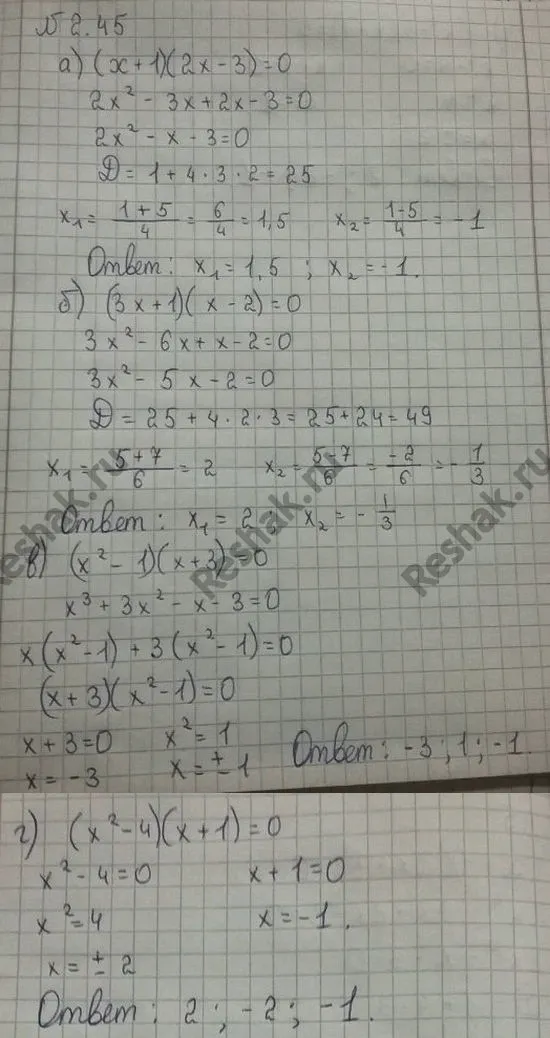 № 2.45
а) (x+1)(2x-3)=0
2x² - 3x+2x-3=0
2x² - x - 3=0
Д = 1 + 4 · 3 · 2 = 25
x₁ = (1+5)/4 = 6/4 = 1,5 x₂ = (1-5)/4 = -1
Ответ: x₁ = 1,5 ; x₂ = -1.
б) (3x+1)(x-2)=0
3x² - 6x + x - 2=0
3x² - 5x - 2=0
Д = 25 + 4 · 2 · 3 = 25+24=49
x₁ = (5+7)/6 = 2 x₂ = (5-7)/6 = -2/6 = -1/3
Ответ: x₁ = 2 ; x₂ = -1/3
в) (x² - 1)(x+3)=0
x³ + 3x² - x - 3=0
x(x²-1) + 3(x²-1)=0
(x+3)(x²-1)=0
x+3=0 x² = 1
x = -3 x = ±1 Ответ: -3 ; 1 ; -1.
г) (x²-4)(x+1)=0
x²-4=0 x+1=0
x²=4 x=-1.
x = ± 2
Ответ: 2 ; -2 ; -1.
Reshak.ru
Reshak.ru
Reshak.ru